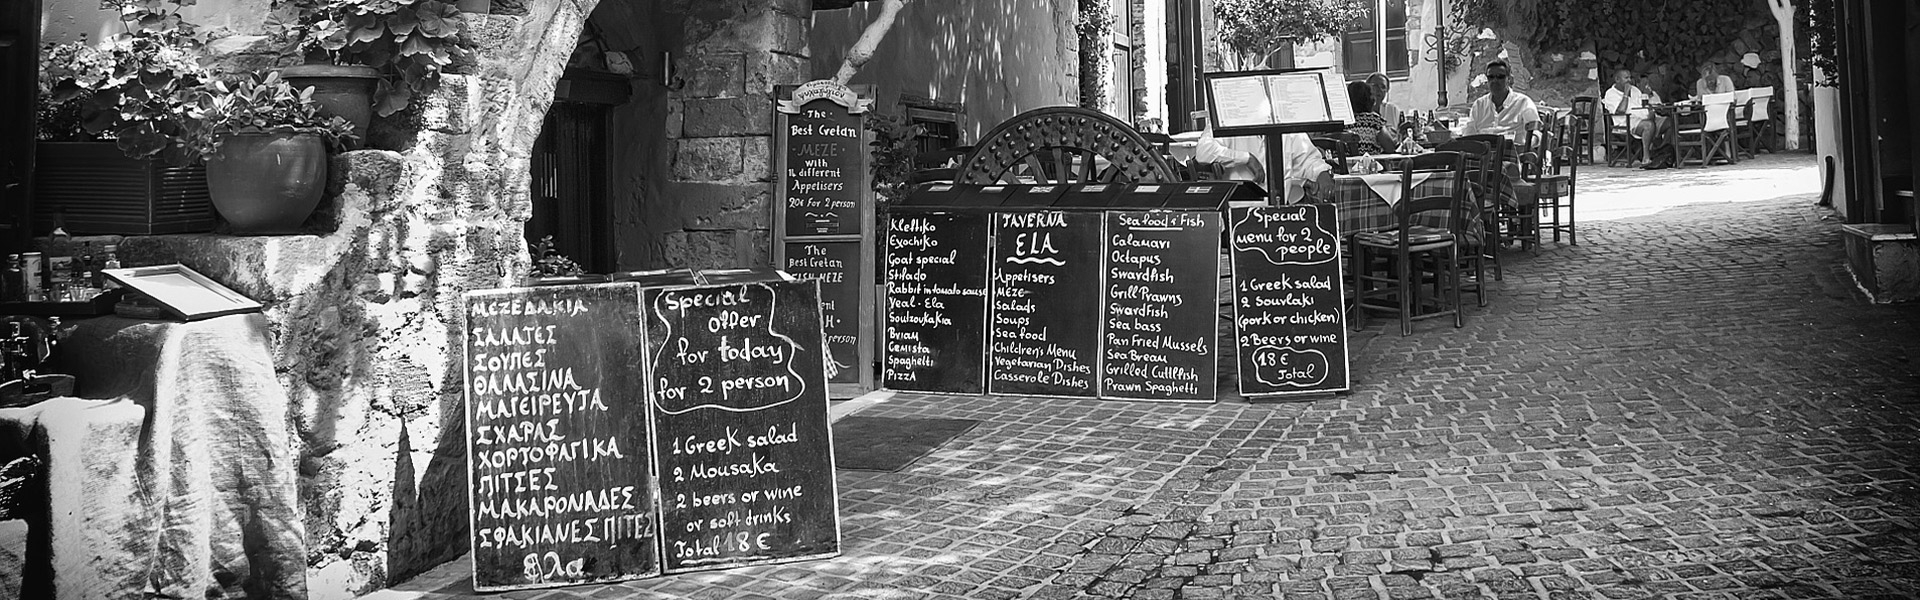 ΜΕΖΕΔΑΚΙΑ
ΣΑΛΑΤΕΣ
ΣΟΥΠΕΣ
ΘΑΛΑΣΙΝΑ
ΜΑΓΕΙΡΕΥΤΑ
ΣΧΑΡΑΣ
ΧΟΡΤΟΦΑΓΙΚΑ
ΠΙΤΣΕΣ
ΜΑΚΑΡΟΝΑΔΕΣ
ΣΦΑΚΙΑΝΕΣ ΠΙΤΕΣ
Special
Offer
for today
for 2 person
1 Greek salad
2 Mousaka
2 beers or wine
or soft drinks
Total 18 €
The
Best Cretan
MEZE
with
different
Appetisers
20€ For 2 person
The
Best Cretan
FISH MEZE
person
Kleftiko
Exochiko
Goat special
Stifado
Rabbit in tomato sause
Veal - Ela
Soutzoukakia
Briam
Gemista
Spaghetti
PizzA
TAVERNA
ELA
Appetisers
MEZE
Salads
Soups
Sea food
Children's Menu
Vegetarian Dishes
Casserole Dishes
Sea food & Fish
Calamari
Octapus
Swardfish
Grill Prawns
Swardfish
Sea bass
Pan Fried Mussels
Sea Breau
Grilled Cuttlfish
Prawn Spaghetti
Special
menu for 2
people
1 Greek salad
2 Souvlaki
(pork or chicken)
2 Beers or wine
18 €
Total